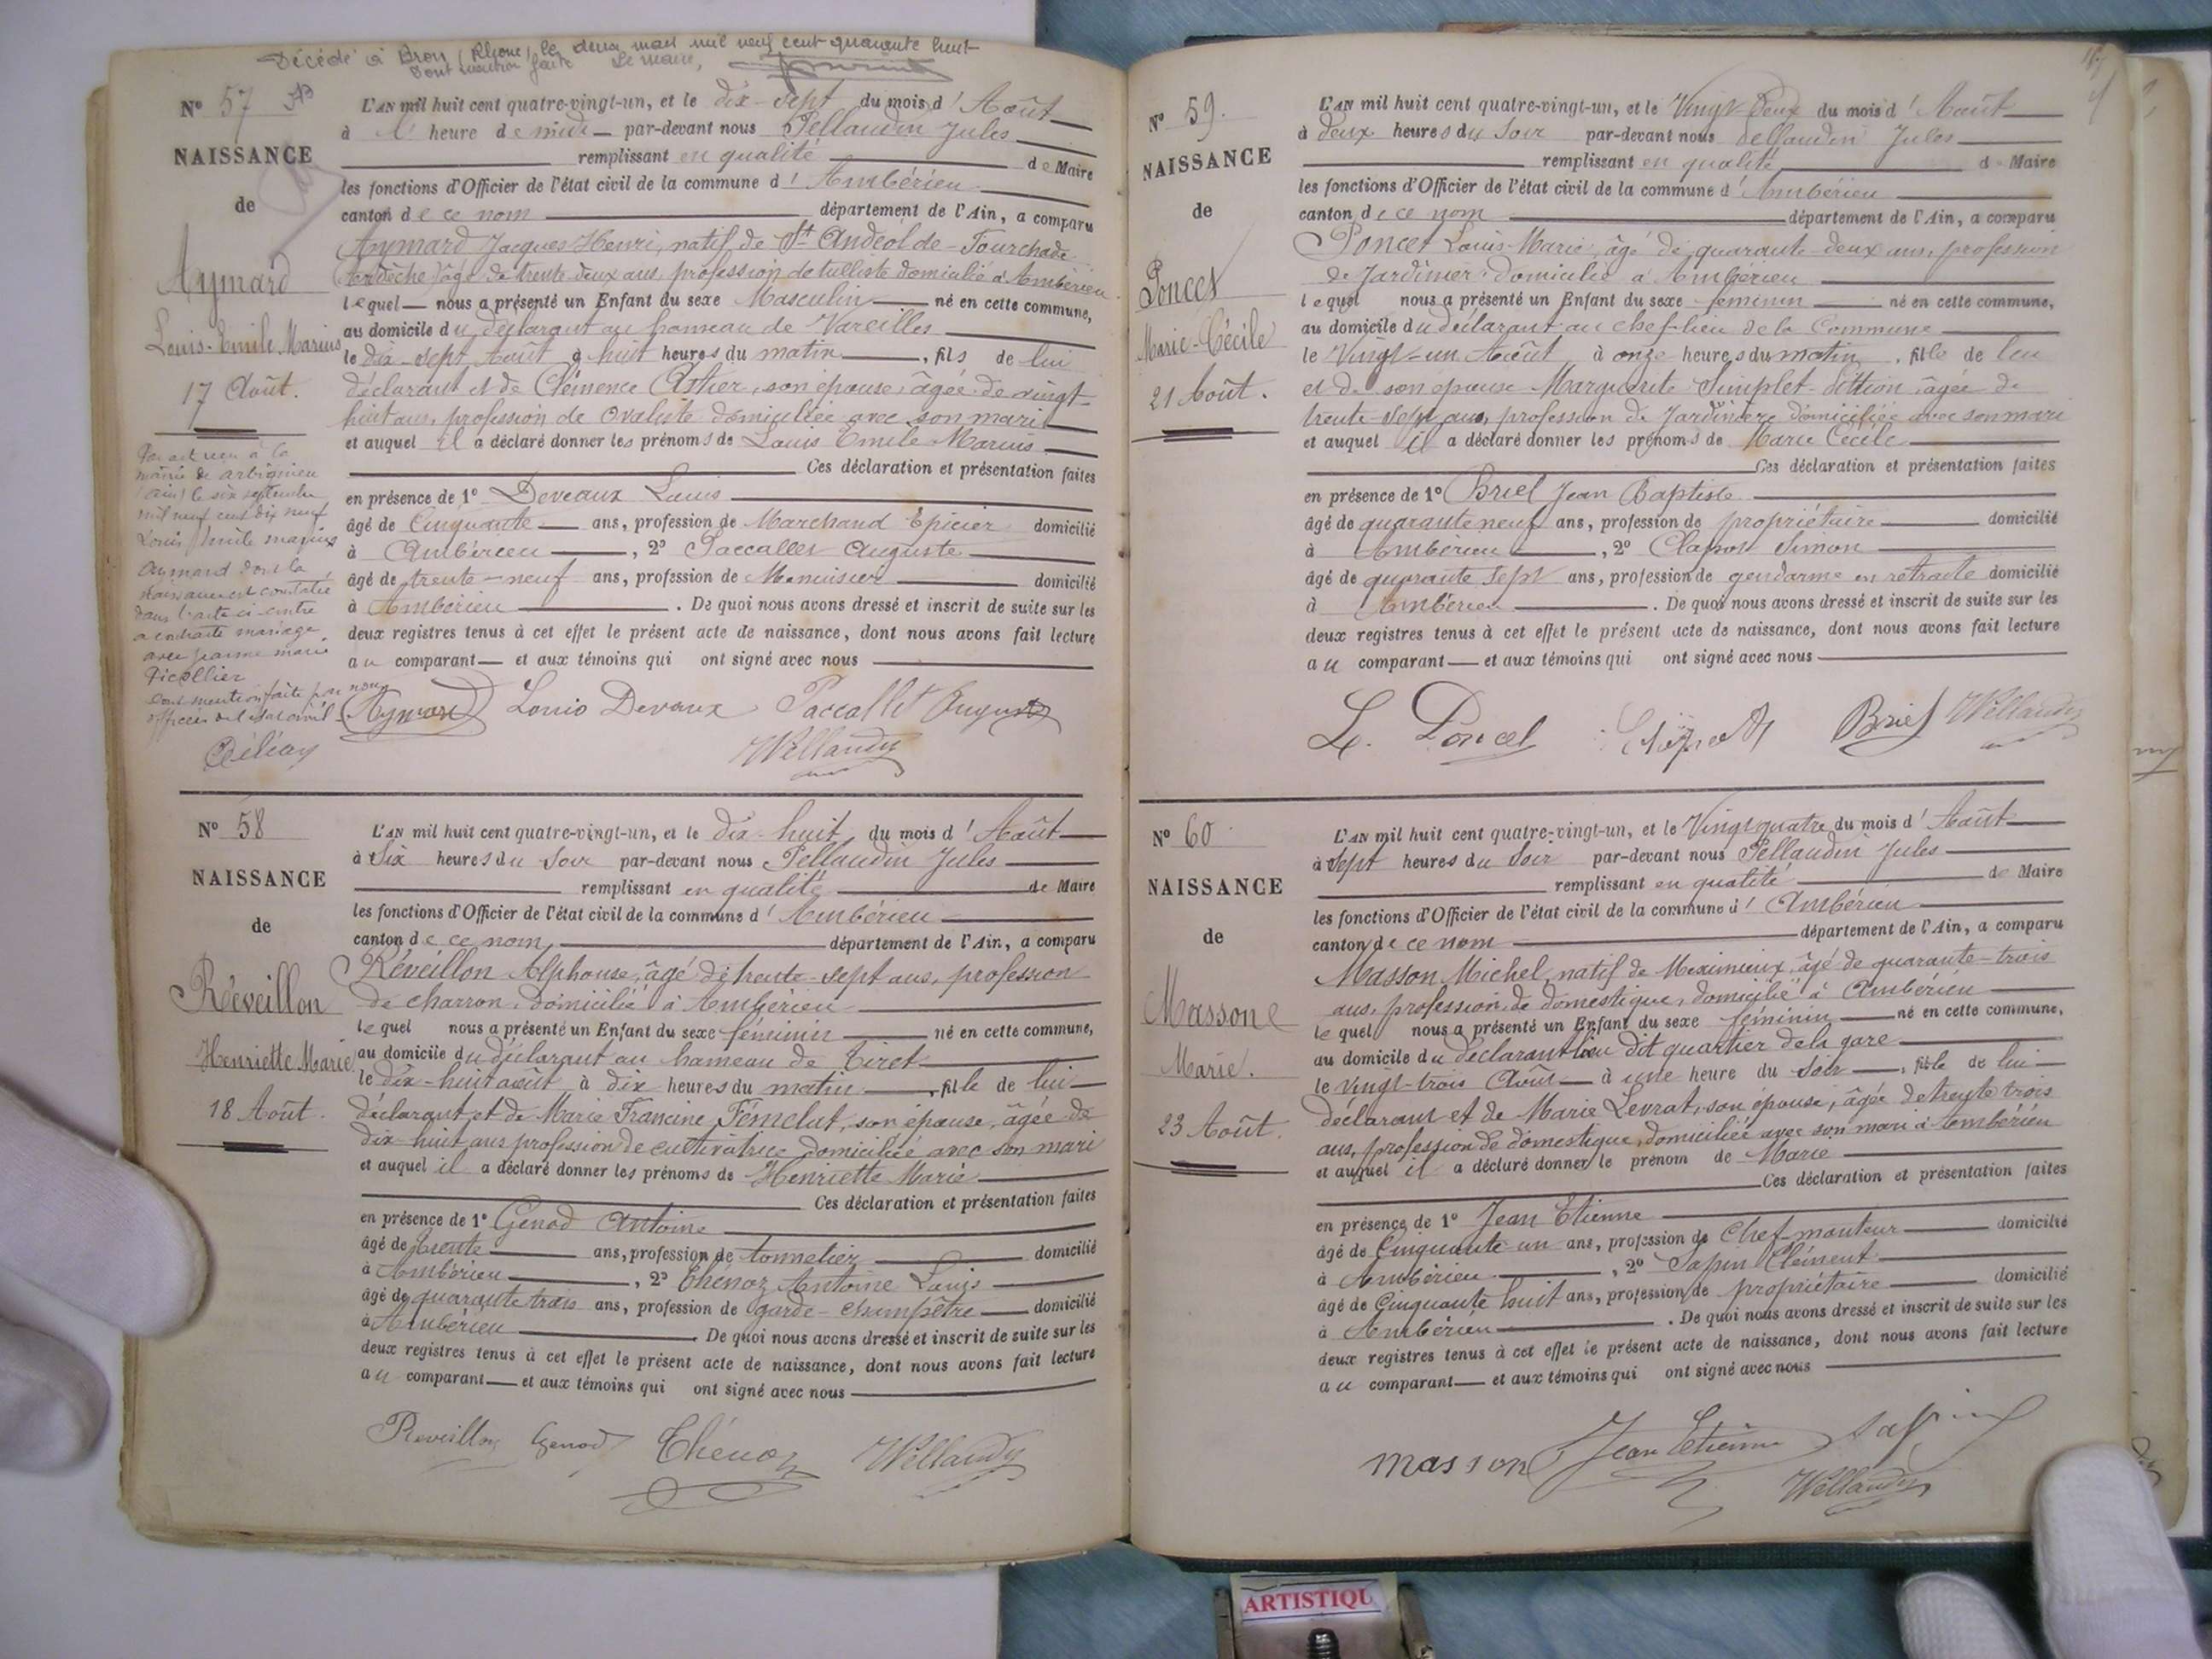 Décédé à Bron (Rhône) le deux mai mil neuf cent quarante huit
dont mention faite Le maire,
N° 57
NAISSANCE
de
Aymard
Louis-Emile Marius
17 Août.
Par acte reçu à la
mairie de Arbignieu
(Ain) le six septembre
mil neuf cent dix neuf
Louis Emile Marius
Aymard dont la
naissance est constatée
dans l'acte ci contre
a contracté mariage
avec Jeanne Marie
Picollier
dont mention faite par nous
officier de l'état civil
L'AN mil huit cent quatre-vingt-un, et le dix-sept du mois d'Août
à l' heure de midi par-devant nous Pellaudin Jules
remplissant en qualité de Maire
les fonctions d'Officier de l'état civil de la commune d'Ambérieu
canton de ce nom département de l'Ain, a comparu
Aymard Jacques Henri, natif de St Andéol de-Fourchade
Ardèche âgé de trente deux ans, profession de tulliste domicilié à Ambérieu
lequel nous a présenté un Enfant du sexe Masculin né en cette commune,
au domicile du déclarant au hameau de Vareilles
le dix-sept Août à huit heures du matin, fils de lui
déclarant et de Clémence Astier, son épouse, âgée de vingt-
huit ans, profession de Ovaliste domiciliée avec son mari
et auquel il a déclaré donner les prénoms de Louis Emile Marius
Ces déclaration et présentation faites
en présence de 1° Deveaux Louis
âgé de Cinquante ans, profession de Marchand Epicier domicilié
à Ambérieu, 2° Paccallet Auguste
âgé de trente-neuf ans, profession de Menuisier domicilié
à Ambérieu. De quoi nous avons dressé et inscrit de suite sur les
deux registres tenus à cet effet le présent acte de naissance, dont nous avons fait lecture
au comparant et aux témoins qui ont signé avec nous
Aymard Louis Devaux Paccallet Auguste
N° 58
NAISSANCE
de
Réveillon
Henriette Marie
18 Août.
L'AN mil huit cent quatre-vingt-un, et le dix-huit du mois d'Août
à Six heures du Soir par-devant nous Pellaudin Jules
remplissant en qualité de Maire
les fonctions d'Officier de l'état civil de la commune d'Ambérieu
canton de ce nom département de l'Ain, a comparu
Réveillon Alphonse, âgé de trente-sept ans, profession
de charron, domicilié à Ambérieu
lequel nous a présenté un Enfant du sexe féminin né en cette commune,
au domicile du déclarant au hameau de Tiret
le dix-huit août à dix heures du matin, fille de lui
déclarant et de Marie Francine Fémelut, son épouse, âgée de
dix-huit ans profession de cultivatrice domiciliée avec son mari
et auquel il a déclaré donner les prénoms de Henriette Marie
Ces déclaration et présentation faites
en présence de 1° Genod Antoine
âgé de trente ans, profession de tonnelier domicilié
à Ambérieu, 2° Thénoz Antoine Louis
âgé de quarante trois ans, profession de garde-champêtre domicilié
à Ambérieu. De quoi nous avons dressé et inscrit de suite sur les
deux registres tenus à cet effet le présent acte de naissance, dont nous avons fait lecture
au comparant et aux témoins qui ont signé avec nous
Reveillon Genod Thénoz
N° 59.
NAISSANCE
de
Poncet
Marie-Cécile
21 Août.
L'AN mil huit cent quatre-vingt-un, et le Vingt Deux du mois d'Août
à deux heures du Soir par-devant nous Pellaudin Jules
remplissant en qualité de Maire
les fonctions d'Officier de l'état civil de la commune d'Ambérieu
canton de ce nom département de l'Ain, a comparu
Poncet Louis-Marie, âgé de quarante-deux ans, profession
de Jardinier, domicilié à Ambérieu
lequel nous a présenté un Enfant du sexe féminin né en cette commune,
au domicile du déclarant au chef-lieu de la Commune
le Vingt-un Août à onze heures du matin, fille de lui
et de son épouse Marguerite Simplet-Sittion âgée de
trente-sept ans, profession de Jardinière domiciliée avec son mari
et auquel il a déclaré donner les prénoms de Marie Cécile
Ces déclaration et présentation faites
en présence de 1° Briel Jean Baptiste
âgé de quarante neuf ans, profession de propriétaire domicilié
à Ambérieu, 2° Simon
âgé de quarante sept ans, profession de gendarme en retraite domicilié
à Ambérieu. De quoi nous avons dressé et inscrit de suite sur les
deux registres tenus à cet effet le présent acte de naissance, dont nous avons fait lecture
au comparant et aux témoins qui ont signé avec nous
L. Poncet Briel
N° 60
NAISSANCE
de
Masson
Marie.
23 Août.
L'AN mil huit cent quatre-vingt-un, et le Vingt quatre du mois d'Août
à Sept heures du Soir par-devant nous Pellaudin Jules
remplissant en qualité de Maire
les fonctions d'Officier de l'état civil de la commune d'Ambérieu
canton de ce nom département de l'Ain, a comparu
Masson Michel, natif de Meximieux, âgé de quarante-trois
ans, profession de domestique, domicilié à Ambérieu
lequel nous a présenté un Enfant du sexe féminin né en cette commune,
au domicile du déclarant lieu dit quartier de la gare
le vingt-trois Août à une heure du Soir, fille de lui
déclarant et de Marie Levrat, son épouse, âgée de trente trois
ans, profession de domestique, domiciliée avec son mari à Ambérieu
et auquel il a déclaré donner le prénom de Marie
Ces déclaration et présentation faites
en présence de 1° Jean Etienne
âgé de Cinquante un ans, profession de Chef-monteur domicilié
à Ambérieu, 2° Sapin Clément
âgé de Cinquante huit ans, profession de propriétaire domicilié
à Ambérieu. De quoi nous avons dressé et inscrit de suite sur les
deux registres tenus à cet effet le présent acte de naissance, dont nous avons fait lecture
au comparant et aux témoins qui ont signé avec nous
masson Jean Etienne Sapin
ARTISTIQU